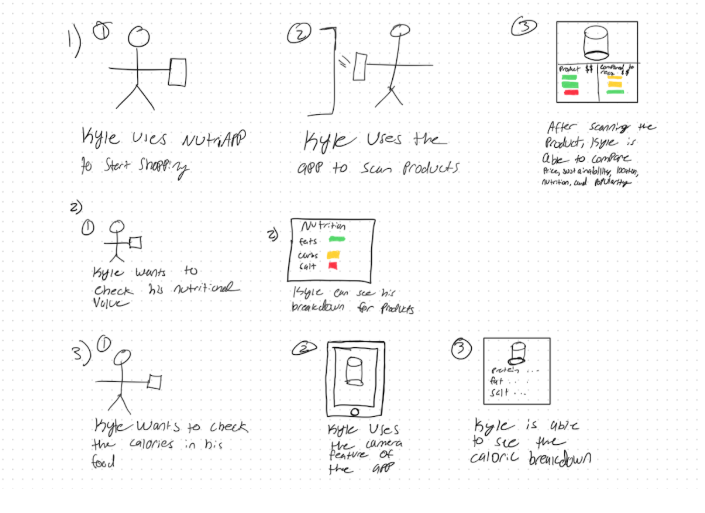 1) ①
Kyle uses NutriAPP
to start shopping
②
Kyle Uses the
app to scan products
③
Product $$
Compared to
$$
After scanning the
Product, Kyle is
able to compare
Price, sustainability, location,
nutrition, and popularity
2)
①
Kyle wants to
check his nutritional
value
2)
Nutrition
fats
carbs
salt
Kyle can see his
breakdown for products
3) ①
Kyle wants to check
the calories in his
food
②
Kyle Uses
the camera
feature of
the app
③
protein ...
fat ...
salt ...
Kyle is able
to see the
caloric breakdown